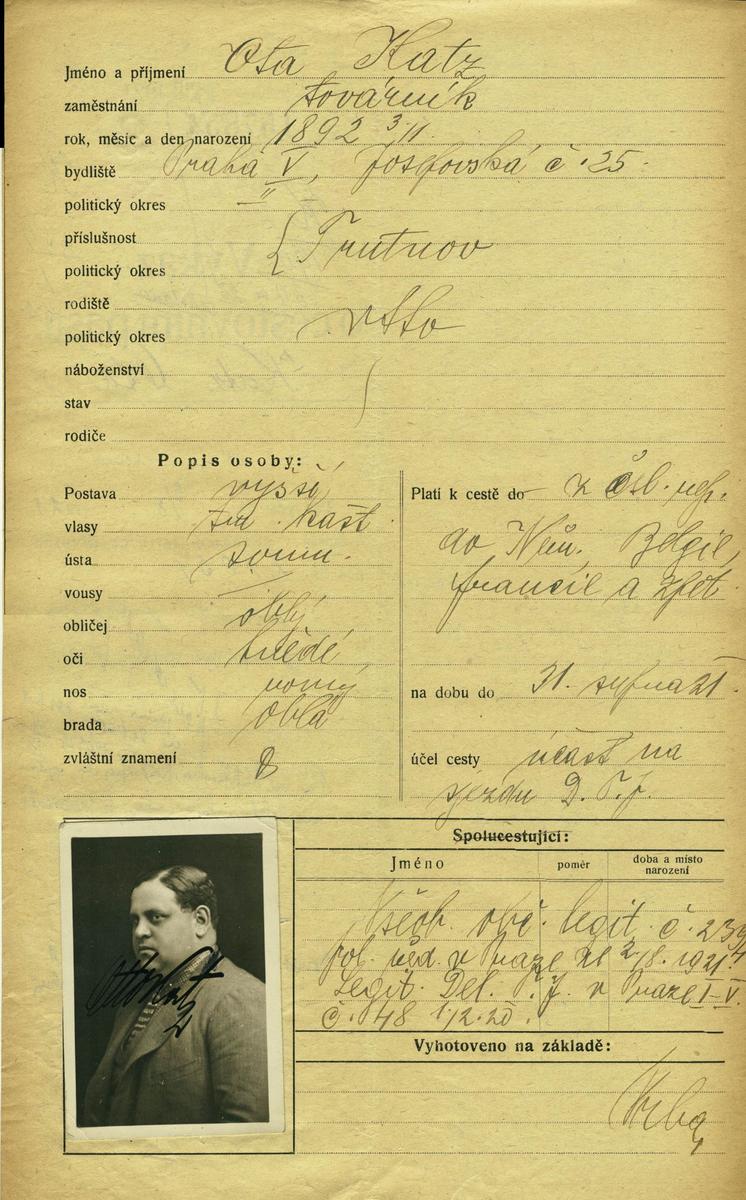 Jméno a příjmení Ota Katz
zaměstnání továrník
rok, měsíc a den narození 1892 3/11.
bydliště Praha V, Josefovská č. 25.
politický okres "
příslušnost { Trutnov
politický okres
rodiště
politický okres
náboženství
stav
rodiče
Popis osoby:
Postava vyšší
vlasy tm. kašt.
ústa soum.
vousy —
obličej oblý
oči hnědé
nos rovný
brada oblá
zvláštní znamení
Platí k cestě do z čsl. rep.
do Něm., Belgie,
Francie a zpět
na dobu do 31. srpna 21.
účel cesty účast na
sjezdu D. T. J.
Spolucestující:
Jméno
poměr
doba a místo narození
Všeob. obč. legit. č. 239
pol. řed. v Praze ze 2./8. 1921.
Legit. Děl. T. J. v Praze I-V.
č. 48 1/2. 20.
Vyhotoveno na základě:
Vrba